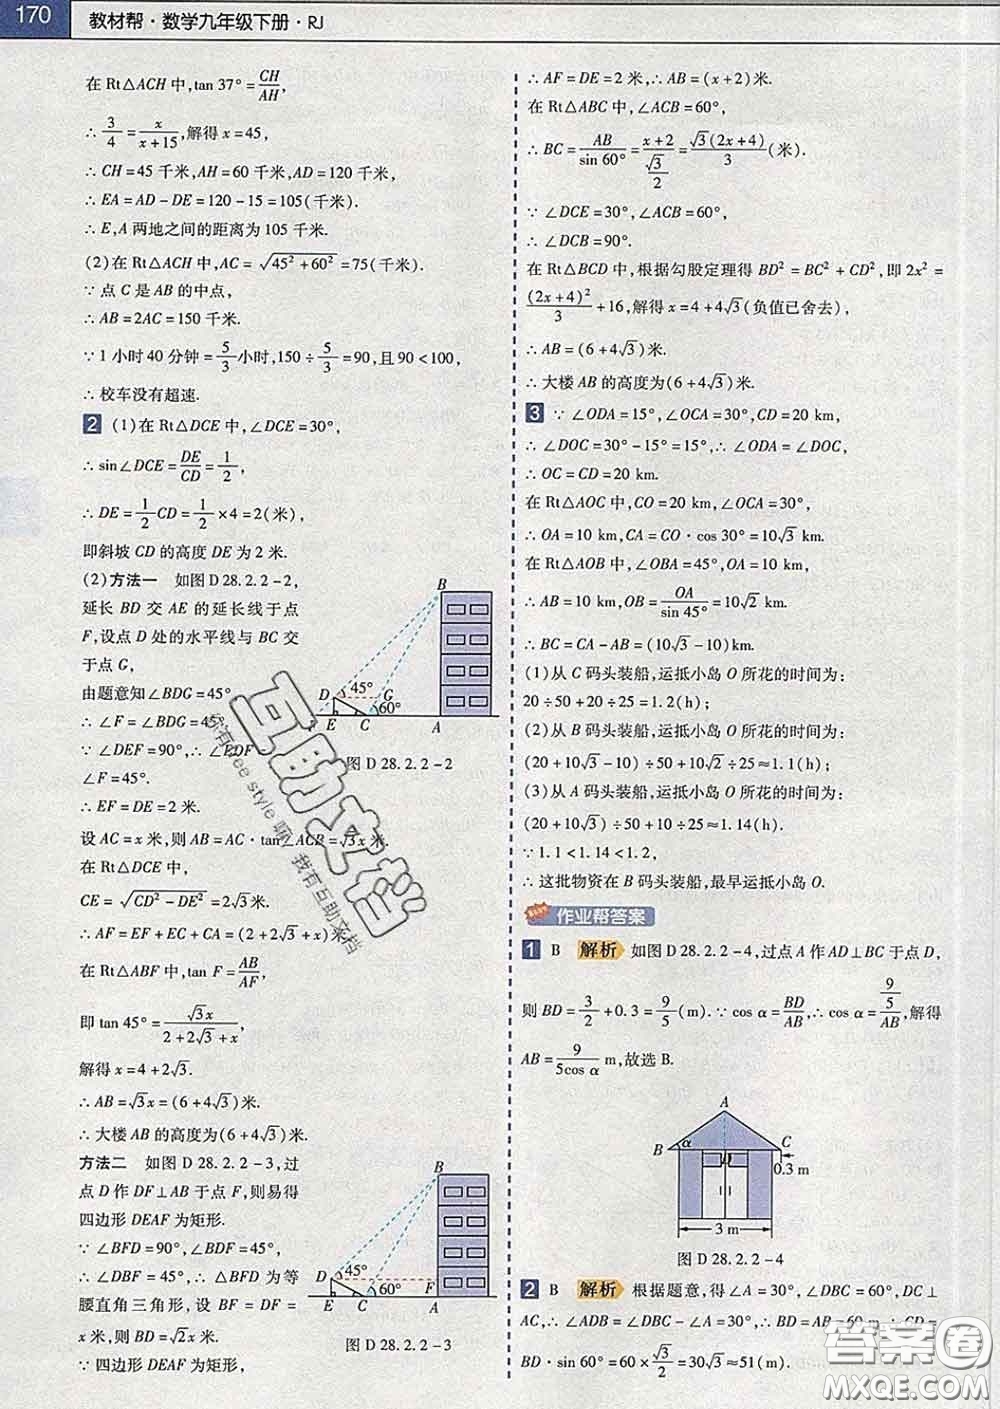 170
教材帮·数学九年级下册·RJ
在 Rt△ACH 中,tan 37°=CH/AH,
∴ 3/4=x/(x+15),解得 x=45,
∴ CH=45 千米,AH=60 千米,AD=120 千米,
∴ EA=AD-DE=120-15=105(千米).
∴ E,A 两地之间的距离为 105 千米.
(2)在 Rt△ACH 中,AC=√(45²+60²)=75(千米).
∵ 点 C 是 AB 的中点,
∴ AB=2AC=150 千米.
∵ 1 小时 40 分钟=5/3小时,150÷5/3=90,且 90<100,
∴ 校车没有超速.
2 (1)在 Rt△DCE 中,∠DCE=30°,
∴ sin∠DCE=DE/CD=1/2,
∴ DE=1/2CD=1/2×4=2(米),
即斜坡 CD 的高度 DE 为 2 米.
(2)方法一 如图 D 28.2.2-2,
延长 BD 交 AE 的延长线于点
F,设点 D 处的水平线与 BC 交
于点 G,
由题意知∠BDG=45°
∴ ∠F=∠BDG=45°
∵ ∠DEF=90°,∴ ∠EDF
∠F=45°.
∴ EF=DE=2 米.
设 AC=x 米,则 AB=AC·tan∠ACB=√3x 米.
在 Rt△DCE 中,
CE=√(CD²-DE²)=2√3(米).
∴ AF=EF+EC+CA=(2+2√3+x)米
在 Rt△ABF 中,tan F=AB/AF,
即 tan 45°=√3x/(2+2√3+x),
解得 x=4+2√3.
∴ AB=√3x=(6+4√3)米.
∴ 大楼 AB 的高度为(6+4√3)米.
方法二 如图 D 28.2.2-3,过
点 D 作 DF⊥AB 于点 F,则易得
四边形 DEAF 为矩形.
∵ ∠BFD=90°,∠BDF=45°,
∴ ∠DBF=45°,∴ △BFD 为等
腰直角三角形,设 BF=DF=
x 米,则 BD=√2x 米.
∵ 四边形 DEAF 为矩形,
B
D
45°
G
60°
E
C
A
图 D 28.2.2-2
B
D
45°
F
60°
E
C
A
图 D 28.2.2-3
∴ AF=DE=2 米,∴ AB=(x+2)米.
在 Rt△ABC 中,∠ACB=60°,
∴ BC=AB/sin 60°=(x+2)/(√3/2)=√3(2x+4)/3(米).
∵ ∠DCE=30°,∠ACB=60°,
∴ ∠DCB=90°.
在 Rt△BCD 中,根据勾股定理得 BD²=BC²+CD²,即 2x²=
(2x+4)²/3+16,解得 x=4+4√3(负值已舍去),
∴ AB=(6+4√3)米.
∴ 大楼 AB 的高度为(6+4√3)米.
3 ∵ ∠ODA=15°,∠OCA=30°,CD=20 km,
∴ ∠DOC=30°-15°=15°,∴ ∠ODA=∠DOC,
∴ OC=CD=20 km.
在 Rt△AOC 中,CO=20 km,∠OCA=30°,
∴ OA=10 km,CA=CO·cos 30°=10√3 km.
在 Rt△AOB 中,∠OBA=45°,OA=10 km,
∴ AB=10 km,OB=OA/sin 45°=10√2 km.
∴ BC=CA-AB=(10√3-10)km.
(1)从 C 码头装船,运抵小岛 O 所花的时间为:
20÷50+20÷25=1.2(h);
(2)从 B 码头装船,运抵小岛 O 所花的时间为:
(20+10√3-10)÷50+10√2÷25≈1.1(h);
(3)从 A 码头装船,运抵小岛 O 所花的时间为:
(20+10√3)÷50+10÷25≈1.14(h).
∵ 1.1<1.14<1.2,
∴ 这批物资在 B 码头装船,最早运抵小岛 O.
作业帮答案
1 B 解析 如图 D 28.2.2-4,过点 A 作 AD⊥BC 于点 D,
则 BD=3/2+0.3=9/5(m). ∵ cos α=BD/AB,∴ cos α=(9/5)/AB,解得
AB=9/(5cos α) m,故选 B.
A
B
α
C
0.3 m
3 m
图 D 28.2.2-4
2 B 解析 根据题意,得∠A=30°,∠DBC=60°,DC⊥
AC,∴ ∠ADB=∠DBC-∠A=30°,∴ BD=AB=60 m,∴ CD=
BD·sin 60°=60×√3/2=30√3≈51(m).
互助文档
你有free style 嘛, 我有互助文档
答案圈
MXQE.COM